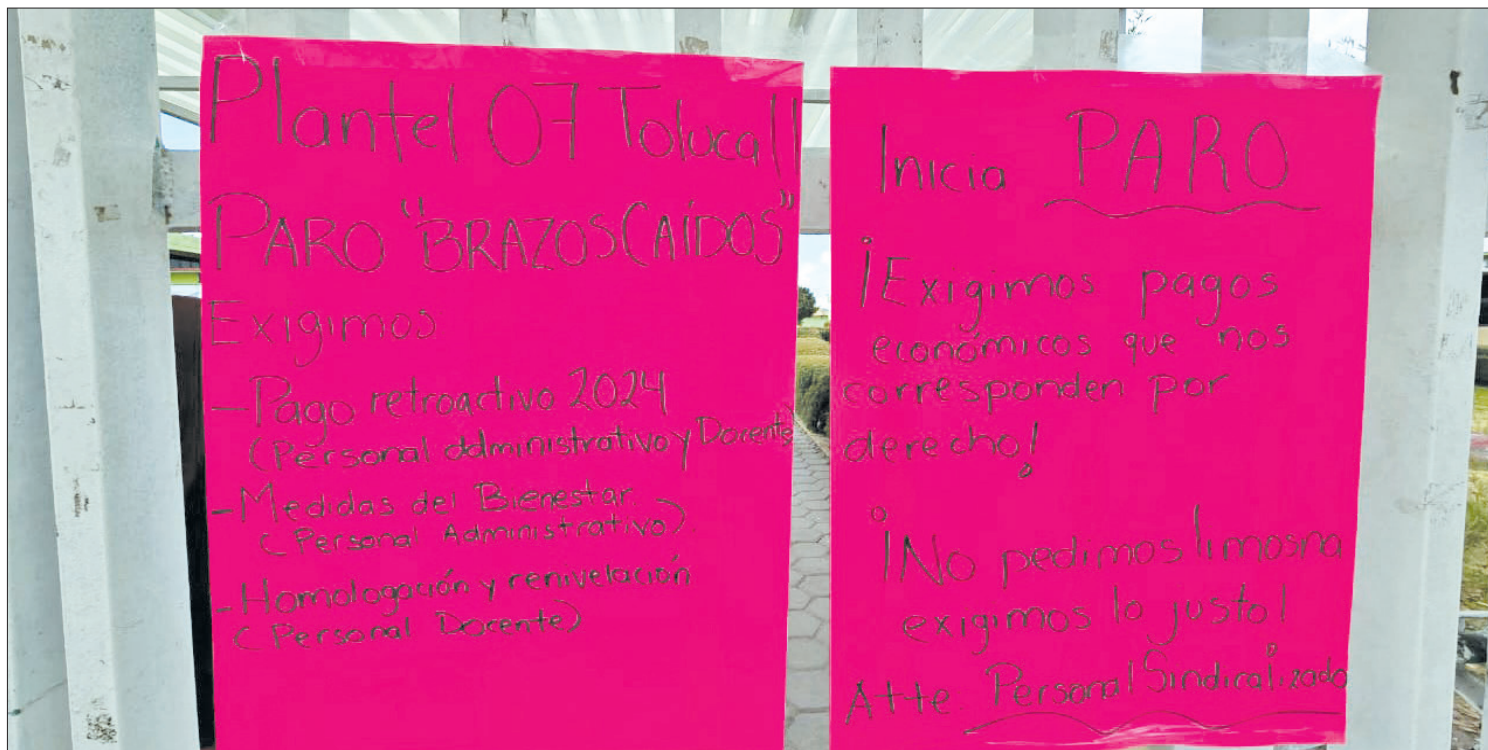 Plantel 07 Toluca II
PARO "BRAZOS CAÍDOS"
Exigimos
- Pago retroactivo 2024
(Personal administrativo y Docente)
- Medidas del Bienestar
(Personal Administrativo)
- Homologación y renivelación
(Personal Docente)
Inicia PARO
¡Exigimos pagos
económicos que nos
corresponden por
derecho!
¡No pedimos limosna
exigimos lo justo!
Atte Personal Sindicalizado